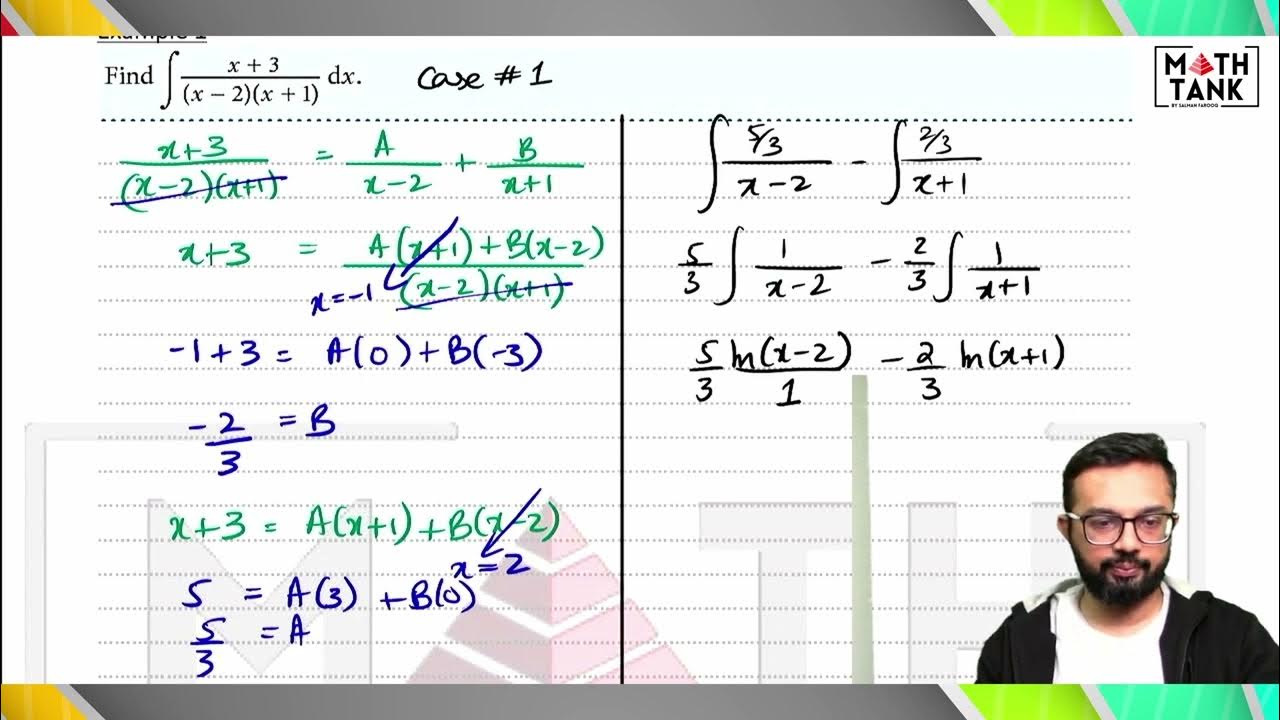 Example 1
Find ∫ (x + 3)/((x − 2)(x + 1)) dx. Case # 1
MATH
TANK
BY SALMAN FAROOQ
(x+3)/((x−2)(x+1)) = A/(x−2) + B/(x+1)
x+3 = (A(x+1)+B(x−2))/((x−2)(x+1))
x=−1
−1+3 = A(0)+B(−3)
−2/3 = B
x+3 = A(x+1)+B(x−2)
x=2
5 = A(3) +B(0)
5/3 = A
∫ (5/3)/(x−2) − ∫ (2/3)/(x+1)
5/3 ∫ 1/(x−2) − 2/3 ∫ 1/(x+1)
5/3 ln(x−2)/1 − 2/3 ln(x+1)